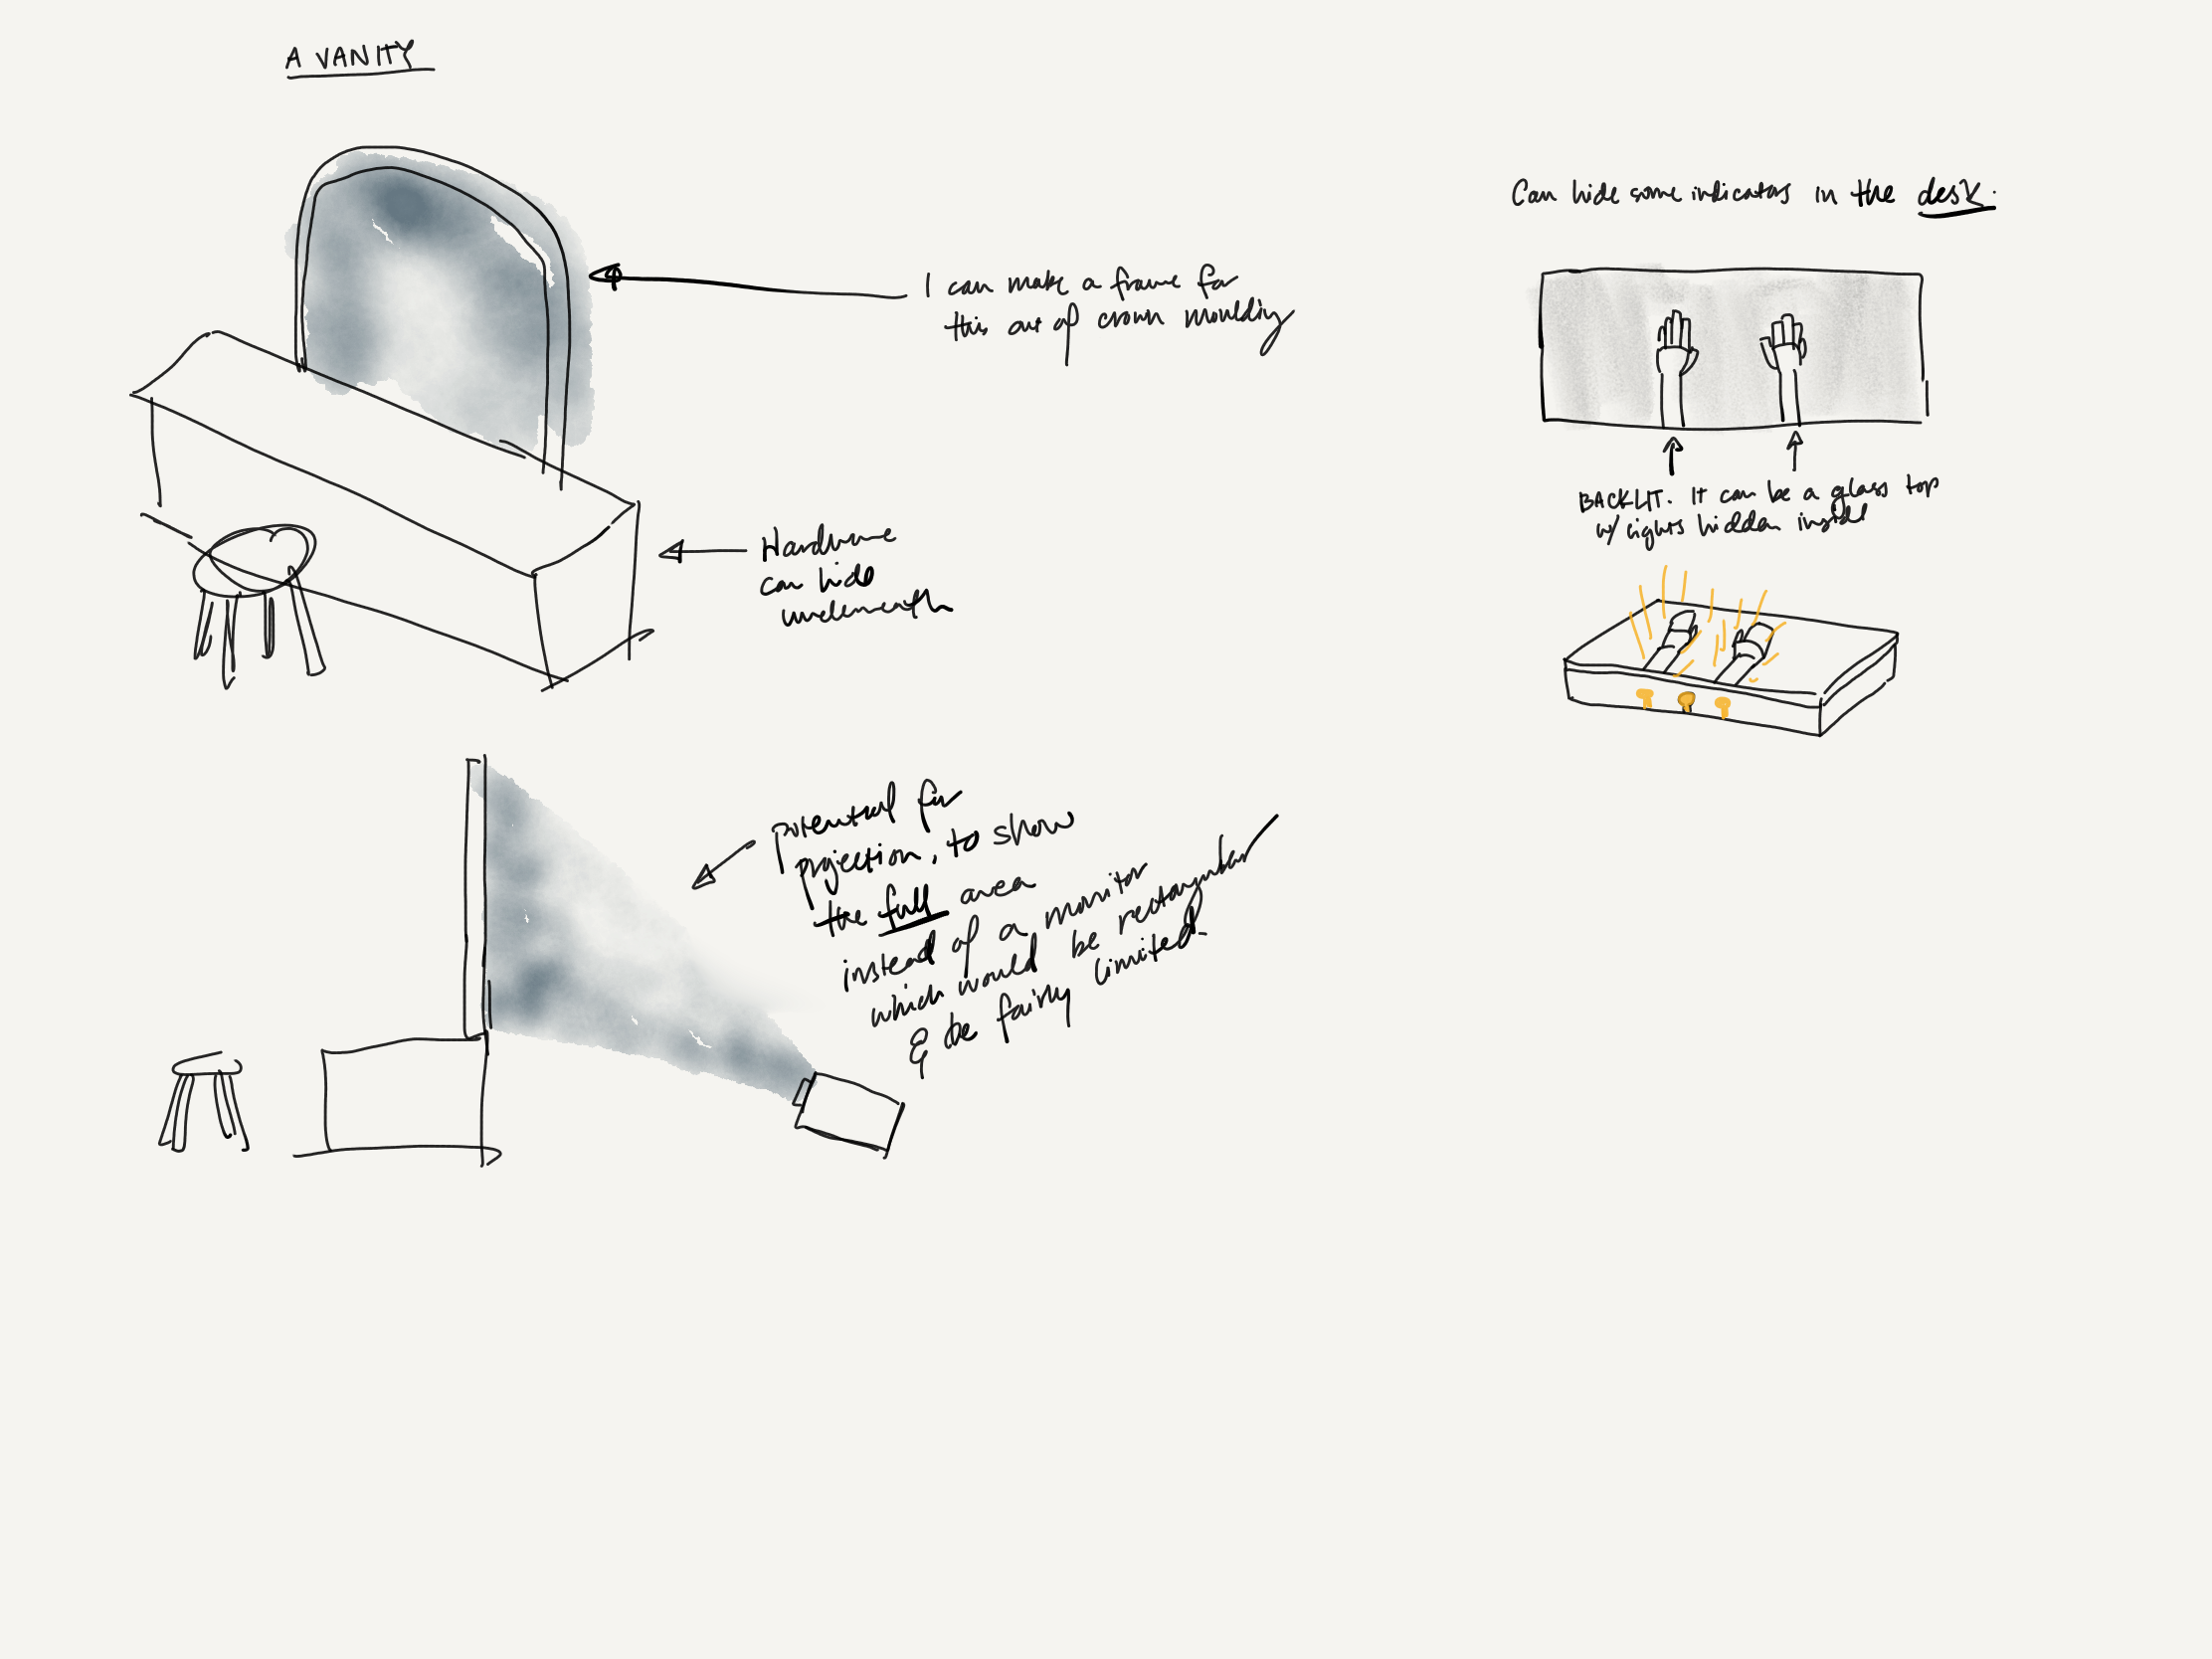 A VANITY
I can make a frame for
this out of crown moulding
Hardware
can hide
underneath
potential for
projection, to show
the full area
instead of a monitor
which would be rectangular
& be fairly limited.
Can hide some indicators in the desk.
BACKLIT. It can be a glass top
w/ lights hidden inside